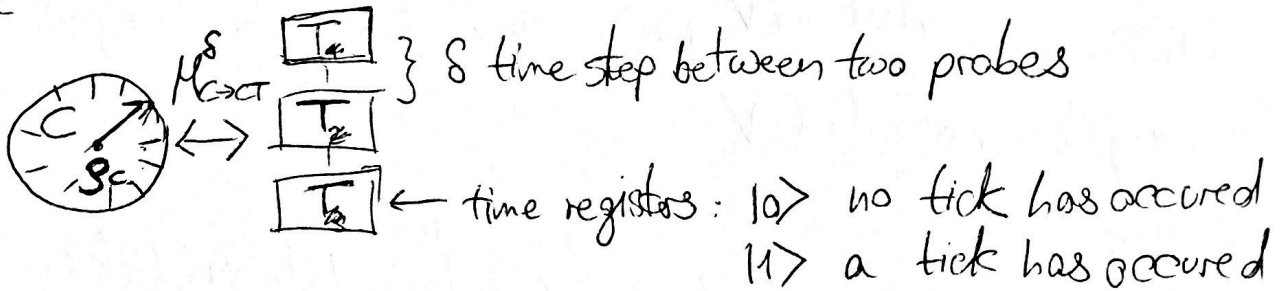 T₁
} δ time step between two probes
M^δ_{C→CT}
C
T₂
ρ_C
T₃ ← time registers: |0> no tick has occured
|1> a tick has occured